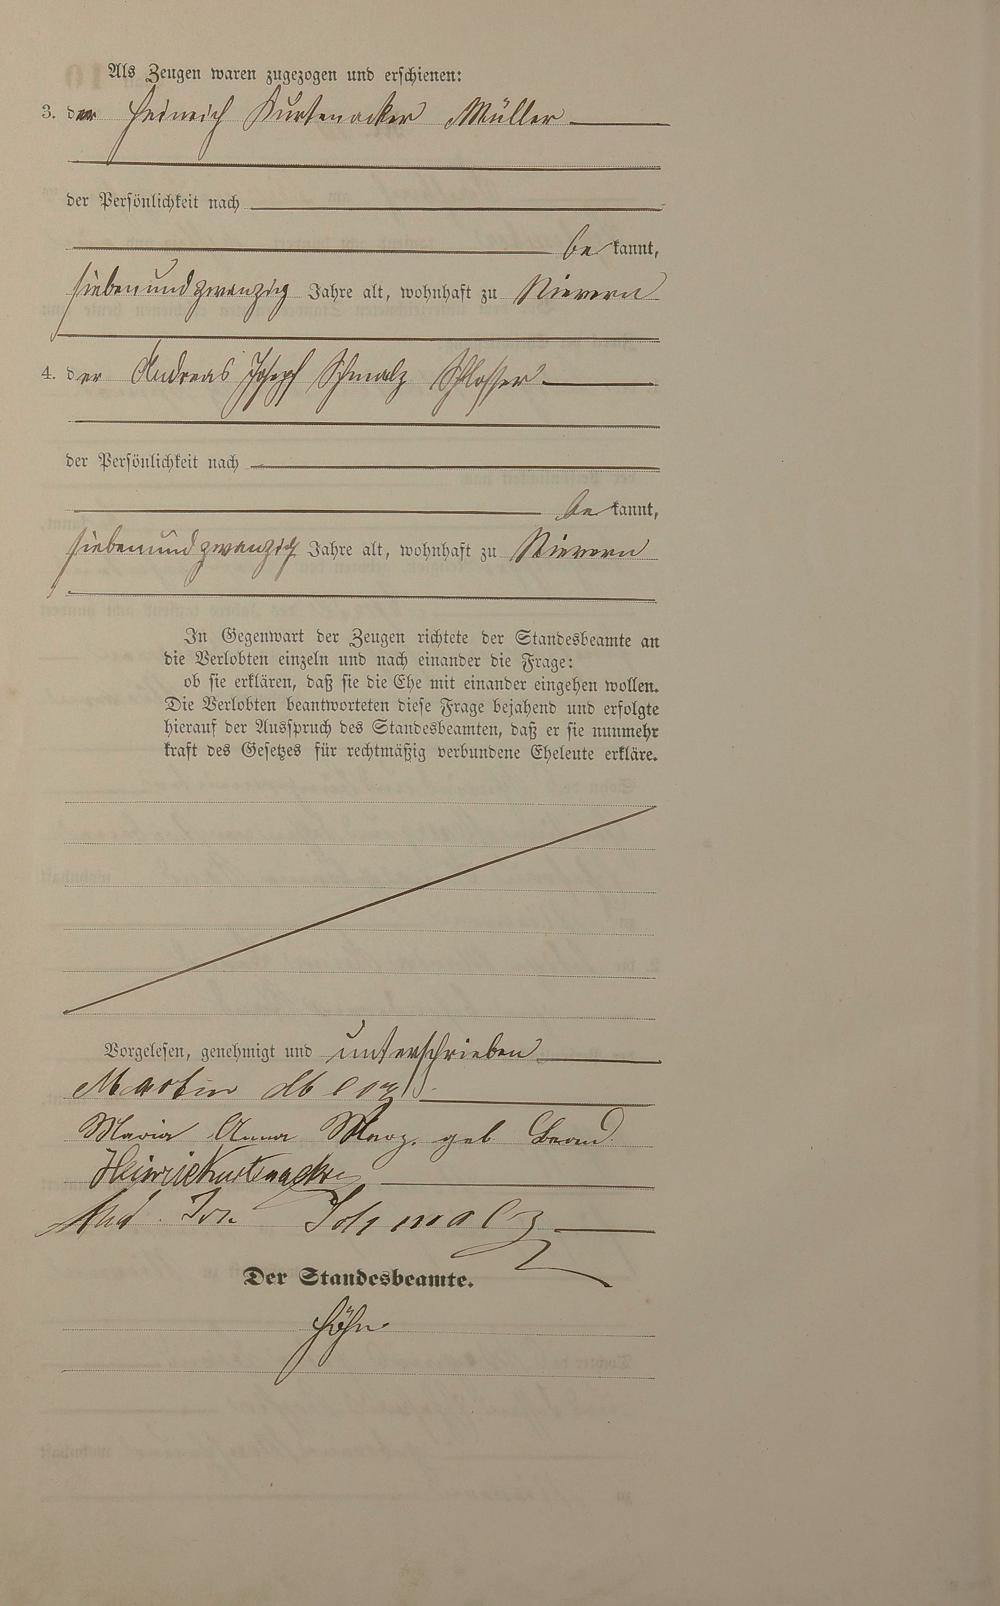 Als Zeugen waren zugezogen und erschienen:
3. der Heinrich Kurtenacker Müller
der Persönlichkeit nach
be kannt,
siebenundzwanzig Jahre alt, wohnhaft zu Nievern
4. der Andreas Joseph Schmalz Schlosser
der Persönlichkeit nach
be kannt,
siebenundzwanzig Jahre alt, wohnhaft zu Nievern
In Gegenwart der Zeugen richtete der Standesbeamte an
die Verlobten einzeln und nach einander die Frage:
ob sie erklären, daß sie die Ehe mit einander eingehen wollen.
Die Verlobten beantworteten diese Frage bejahend und erfolgte
hierauf der Ausspruch des Standesbeamten, daß er sie nunmehr
kraft des Gesetzes für rechtmäßig verbundene Eheleute erkläre.
Vorgelesen, genehmigt und unterschrieben
Martin
Maria Anna geb
Heinrich Kurtenacker
And. Jos. Schmalz
Der Standesbeamte.
Höhn